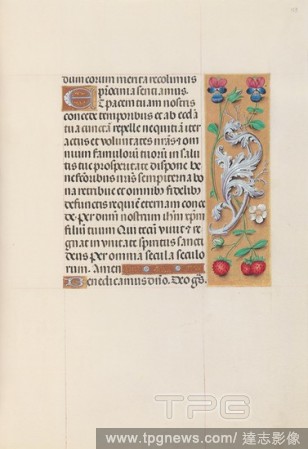 dum eorum merita recolimus
patrocinia sentiamus.
Et pacem tuam nostris
concede temporibus et ab ecclesia
tua cunctam repelle nequitiam iter
actus et voluntates nras et om
nium famulorum tuorum in salu
tis tue prosperitate dispone be
nefactoribus nris sempiterna bo
na retribue et omnibus fidelibus
defunctis requiem eternam conce
de. Per dnm nostrum ihm xpm
filium tuum Qui tecum vivit et re
gnat in unitate spiritus sancti
deus Per omnia secula seculo
rum. Amen
Benedicamus dno. Deo gras.
TPG
www.tpgnews.com/達志影像